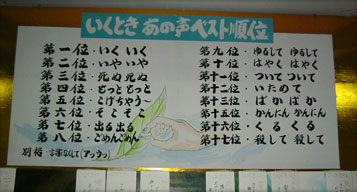 いくとき あの声ベスト順位
第一位・いく いく
第二位・いや いや
第三位・死ぬ 死ぬ
第四位・もっと もっと
第五位・こげちゃう〜
第六位・そこ そこ
第七位・出る 出る
第八位・ごめん ごめん
別格 言葉なくして(アッウッ)
第九位・ゆるして ゆるして
第十位・はやく はやく
第十一位・ついて ついて
第十二位・いためて
第十三位・ばか ばか
第十五位・かんにん かんにん
第十六位・くる くる
第十七位・殺して 殺して